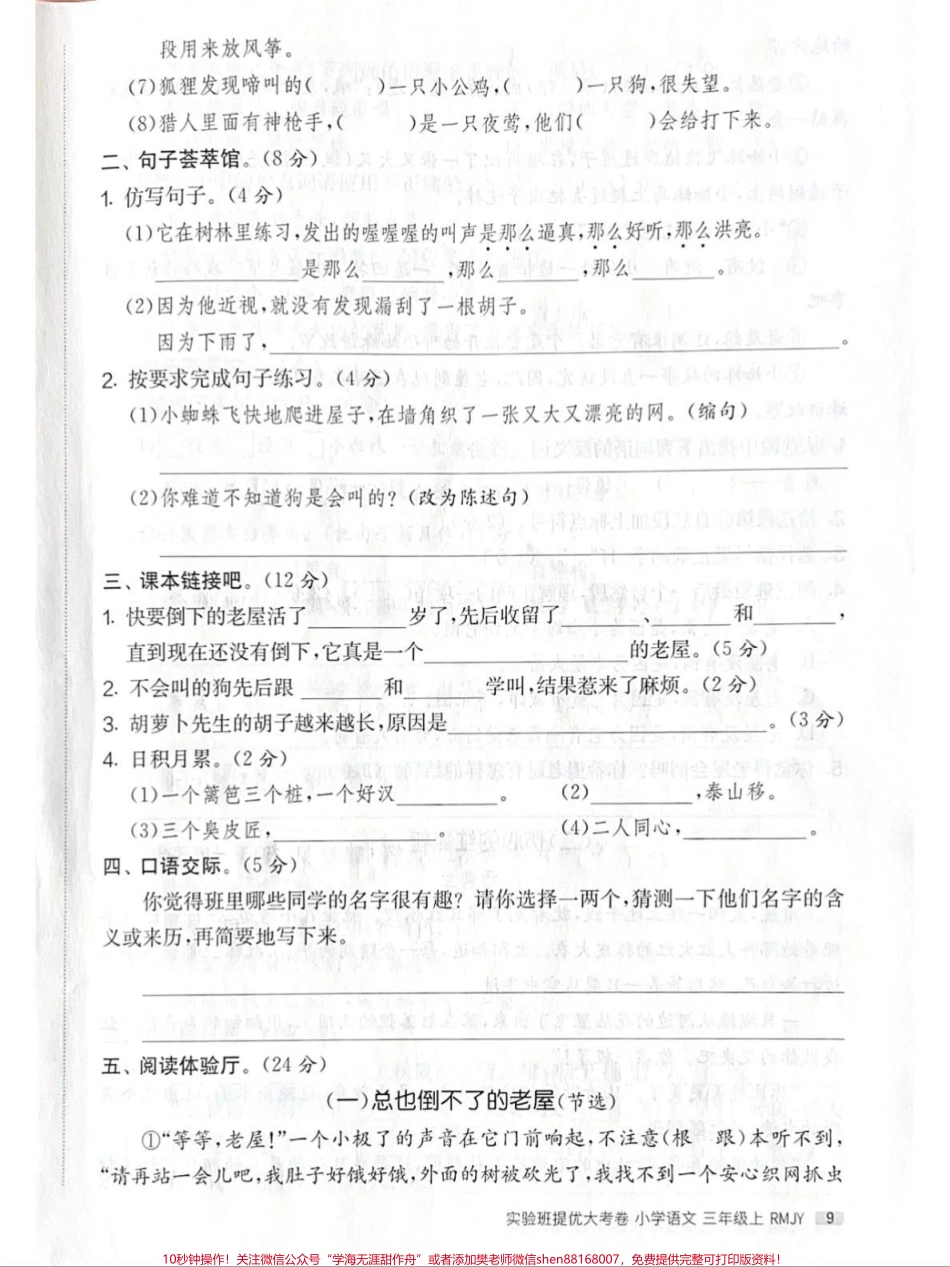 段用来放风筝。
(7)狐狸发现啼叫的(　　)一只小公鸡,(　　)一只狗,很失望。
(8)猎人里面有神枪手,(　　)是一只夜莺,他们(　　)会给打下来。
二、句子荟萃馆。(8分)
1. 仿写句子。(4分)
(1)它在树林里练习,发出的喔喔喔的叫声是那么逼真,那么好听,那么洪亮。
________是那么________,那么________,那么________。
(2)因为他近视,就没有发现漏刮了一根胡子。
因为下雨了,________。
2. 按要求完成句子练习。(4分)
(1)小蜘蛛飞快地爬进屋子,在墙角织了一张又大又漂亮的网。(缩句)
(2)你难道不知道狗是会叫的?(改为陈述句)
三、课本链接吧。(12分)
1. 快要倒下的老屋活了________岁了,先后收留了________、________和________,
直到现在还没有倒下,它真是一个________的老屋。(5分)
2. 不会叫的狗先后跟________和________学叫,结果惹来了麻烦。(2分)
3. 胡萝卜先生的胡子越来越长,原因是________。(3分)
4. 日积月累。(2分)
(1)一个篱笆三个桩,一个好汉________。　(2)________,泰山移。
(3)三个臭皮匠,________。　(4)二人同心,________。
四、口语交际。(5分)
你觉得班里哪些同学的名字很有趣?请你选择一两个,猜测一下他们名字的含
义或来历,再简要地写下来。
五、阅读体验厅。(24分)
(一)总也倒不了的老屋(节选)
①“等等,老屋!”一个小极了的声音在它门前响起,不注意(根　跟)本听不到,
“请再站一会儿吧,我肚子好饿好饿,外面的树被砍光了,我找不到一个安心织网抓虫
实验班提优大考卷 小学语文 三年级上 RMJY 9
10秒钟操作！关注微信公众号“学海无涯甜作舟”或者添加樊老师微信shen88168007，免费提供完整可打印版资料！